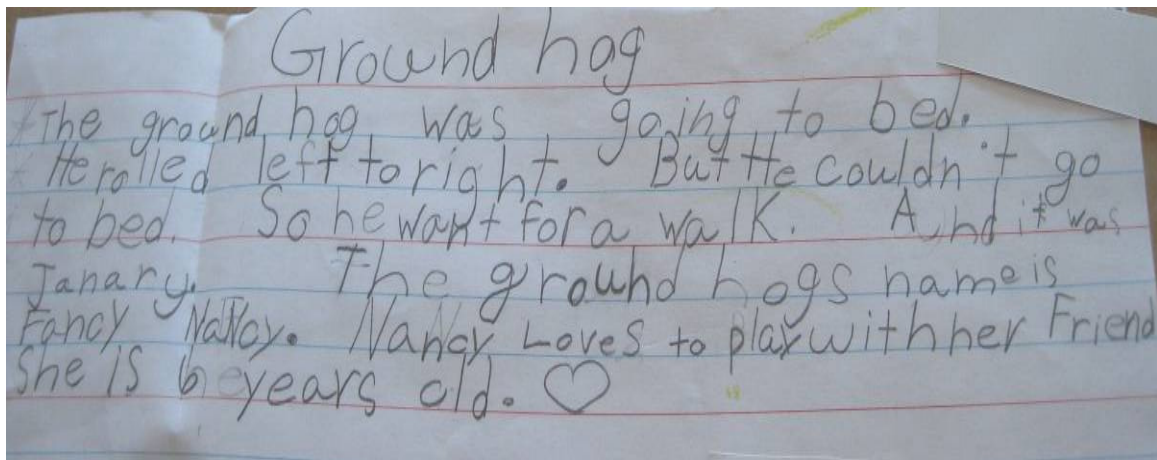 Ground hog
The ground hog was going to bed.
He rolled left to right. But He couldn't go
to bed. So he want for a walk. And it was
Janary. The ground hogs name is
Fancy Nancy. Nancy Loves to play with her Friend
She is 6 years old. ♡